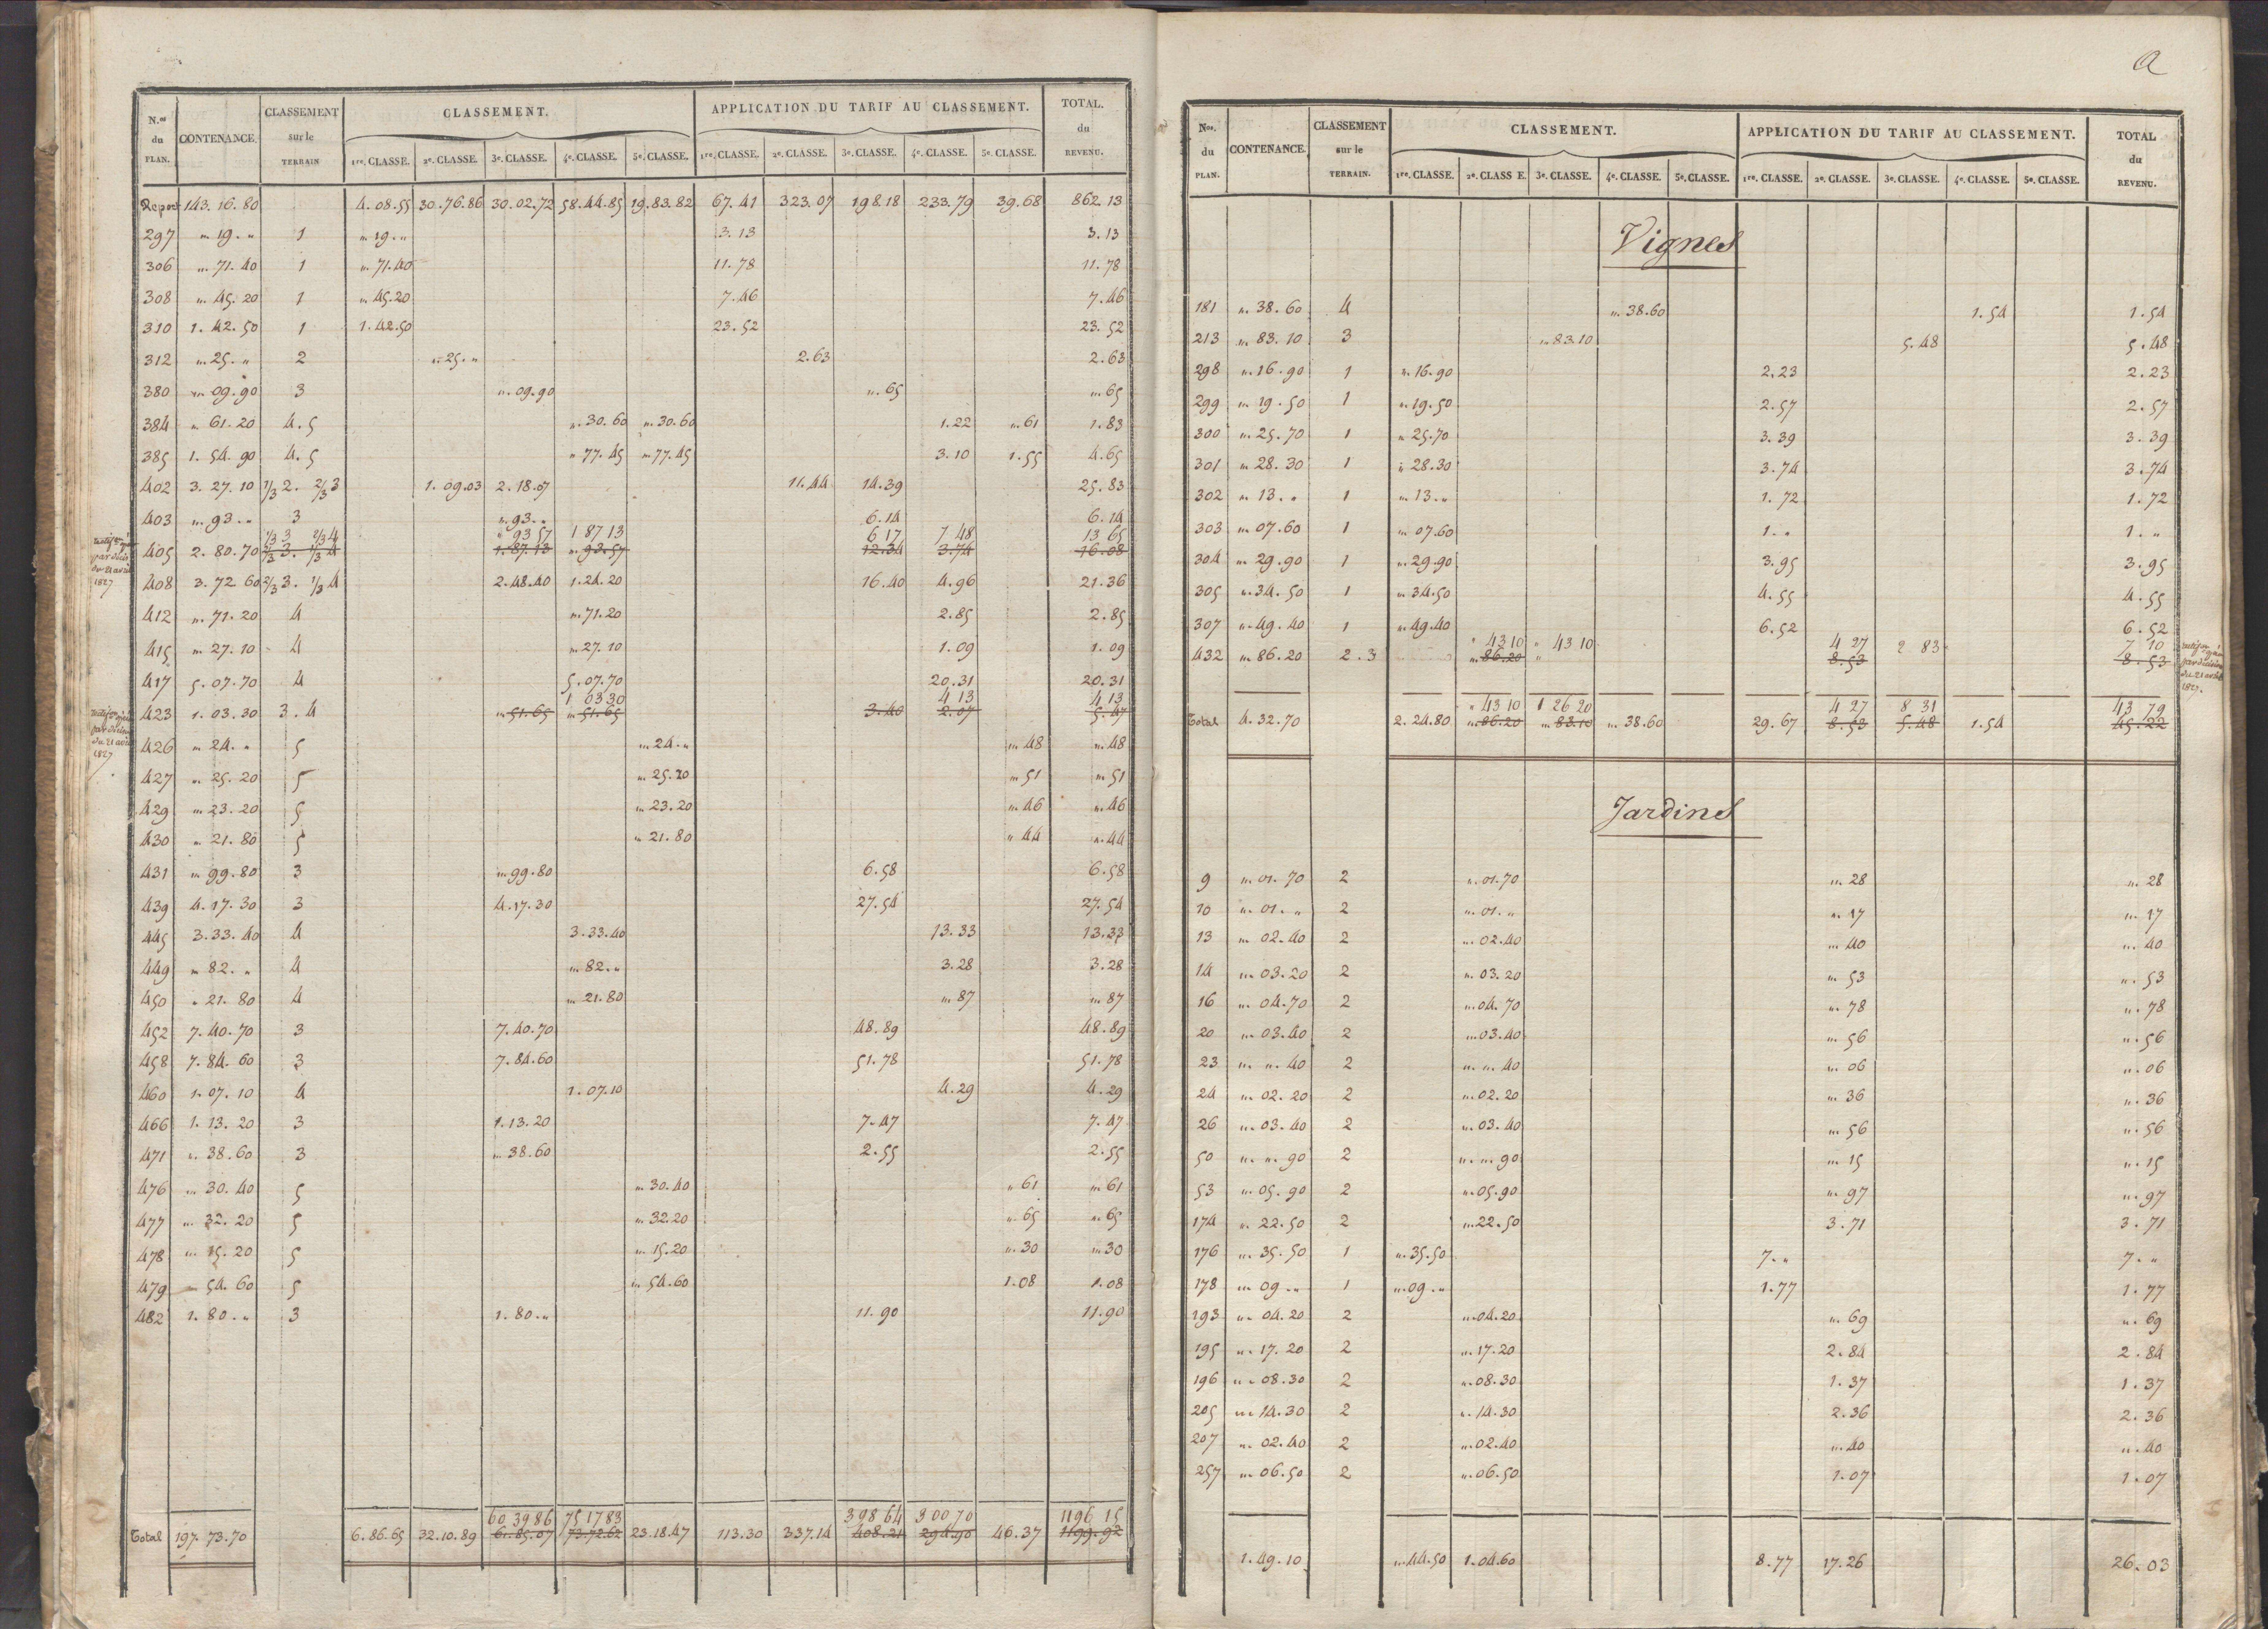 N.os du PLAN. CONTENANCE. CLASSEMENT sur le TERRAIN CLASSEMENT. APPLICATION DU TARIF AU CLASSEMENT. TOTAL. du REVENU.
1re. CLASSE. 2e. CLASSE. 3e. CLASSE. 4e. CLASSE. 5e. CLASSE. 1re. CLASSE. 2e. CLASSE. 3e. CLASSE. 4e. CLASSE. 5e. CLASSE.
Report 143.16.80 4.08.55 30.76.86 30.02.72 58.44.85 19.83.82 67.41 323.07 198.18 233.79 39.68 862.13
297 ". 19." 1 ". 19." 3.13 3.13
306 ". 71.40 1 ". 71.40 11.78 11.78
308 ". 45.20 1 ". 45.20 7.46 7.46
310 1.42.50 1 1.42.50 23.52 23.52
312 ". 25." 2 ". 25." 2.63 2.63
380 ". 09.90 3 ". 09.90 ". 65 ". 65
384 ". 61.20 4.5 ". 30.60 ". 30.60 1.22 ". 61 1.83
385 1.54.90 4.5 ". 77.45 ". 77.45 3.10 1.55 4.65
402 3.27.10 1/3 2. 2/3 3 1.09.03 2.18.07 11.44 14.39 25.83
403 ". 93." 3 ". 93." 6.14 6.14
1/3 3 2/3 4 " 93 57 1 87 13 6 17 7 48 13 65
405 2.80.70 2/3 3. 1/3 4 1.87.13 ". 93.57 12.34 3.74 16.08
du 21 avril
1827
408 3.72.60 2/3 3. 1/3 4 2.48.40 1.24.20 16.40 4.96 21.36
412 ". 71.20 4 ". 71.20 2.85 2.85
415 ". 27.10 4 ". 27.10 1.09 1.09
417 5.07.70 4 5.07.70 20.31 20.31
1 03 30 4 13 4 13
423 1.03.30 3.4 ". 51.65 ". 51.65 3.40 2.07 5.47
du 21 avril
1827
426 ". 24." 5 ". 24." ". 48 ". 48
427 ". 25.20 5 ". 25.20 ". 51 ". 51
429 ". 23.20 5 ". 23.20 ". 46 ". 46
430 ". 21.80 5 ". 21.80 ". 44 ". 44
431 ". 99.80 3 ". 99.80 6.58 6.58
439 4.17.30 3 4.17.30 27.54 27.54
445 3.33.40 4 3.33.40 13.33 13.33
449 ". 82." 4 ". 82." 3.28 3.28
450 ". 21.80 4 ". 21.80 ". 87 ". 87
452 7.40.70 3 7.40.70 48.89 48.89
458 7.84.60 3 7.84.60 51.78 51.78
460 1.07.10 4 1.07.10 4.29 4.29
466 1.13.20 3 1.13.20 7.47 7.47
471 ". 38.60 3 ". 38.60 2.55 2.55
476 ". 30.40 5 ". 30.40 ". 61 ". 61
477 ". 32.20 5 ". 32.20 ". 65 ". 65
478 ". 15.20 5 ". 15.20 ". 30 ". 30
479 ". 54.60 5 ". 54.60 1.08 1.08
482 1.80." 3 1.80." 11.90 11.90
60 39 86 75 17 83 398 64 300 70 1196 15
Total 197.73.70 6.86.65 32.10.89 61.85.07 73.72.62 23.18.47 113.30 337.14 408.21 294.90 46.37 1199.92
a
Nos. du PLAN. CONTENANCE. CLASSEMENT sur le TERRAIN. CLASSEMENT. APPLICATION DU TARIF AU CLASSEMENT. TOTAL du REVENU.
1re. CLASSE. 2e. CLASS E. 3e. CLASSE. 4e. CLASSE. 5e. CLASSE. 1re. CLASSE. 2e. CLASSE. 3e. CLASSE. 4e. CLASSE. 5e. CLASSE.
Vignes
181 ". 38.60 4 ". 38.60 1.54 1.54
213 ". 83.10 3 ". 83.10 5.48 5.48
298 ". 16.90 1 ". 16.90 2.23 2.23
299 ". 19.50 1 ". 19.50 2.57 2.57
300 ". 25.70 1 ". 25.70 3.39 3.39
301 ". 28.30 1 ". 28.30 3.74 3.74
302 ". 13." 1 ". 13." 1.72 1.72
303 ". 07.60 1 ". 07.60 1." 1."
304 ". 29.90 1 ". 29.90 3.95 3.95
305 ". 34.50 1 ". 34.50 4.55 4.55
307 ". 49.40 1 ". 49.40 6.52 6.52
" 43 10 " 43 10 4 27 2 83 7 10
432 ". 86.20 2.3 ". 86.20 " 8.53 8.53
par décision
du 21 avril
1827.
" 43 10 1 26 20 4 27 8 31 43 79
Total 4.32.70 2.24.80 ". 86.20 ". 83.10 ". 38.60 29.67 8.53 5.48 1.54 45.22
Jardins
9 ". 01.70 2 ". 01.70 ". 28 ". 28
10 ". 01." 2 ". 01." ". 17 ". 17
13 ". 02.40 2 ". 02.40 ". 40 ". 40
14 ". 03.20 2 ". 03.20 ". 53 ". 53
16 ". 04.70 2 ". 04.70 ". 78 ". 78
20 ". 03.40 2 ". 03.40 ". 56 ". 56
23 ". ". 40 2 ". ". 40 ". 06 ". 06
24 ". 02.20 2 ". 02.20 ". 36 ". 36
26 ". 03.40 2 ". 03.40 ". 56 ". 56
50 ". ". 90 2 ". ". 90 ". 15 ". 15
53 ". 05.90 2 ". 05.90 ". 97 ". 97
174 ". 22.50 2 ". 22.50 3.71 3.71
176 ". 35.50 1 ". 35.50 7." 7."
178 ". 09." 1 ". 09." 1.77 1.77
193 ". 04.20 2 ". 04.20 ". 69 ". 69
195 ". 17.20 2 ". 17.20 2.84 2.84
196 ". 08.30 2 ". 08.30 1.37 1.37
205 ". 14.30 2 ". 14.30 2.36 2.36
207 ". 02.40 2 ". 02.40 ". 40 ". 40
257 ". 06.50 2 ". 06.50 1.07 1.07
1.49.10 ". 44.50 1.04.60 8.77 17.26 26.03